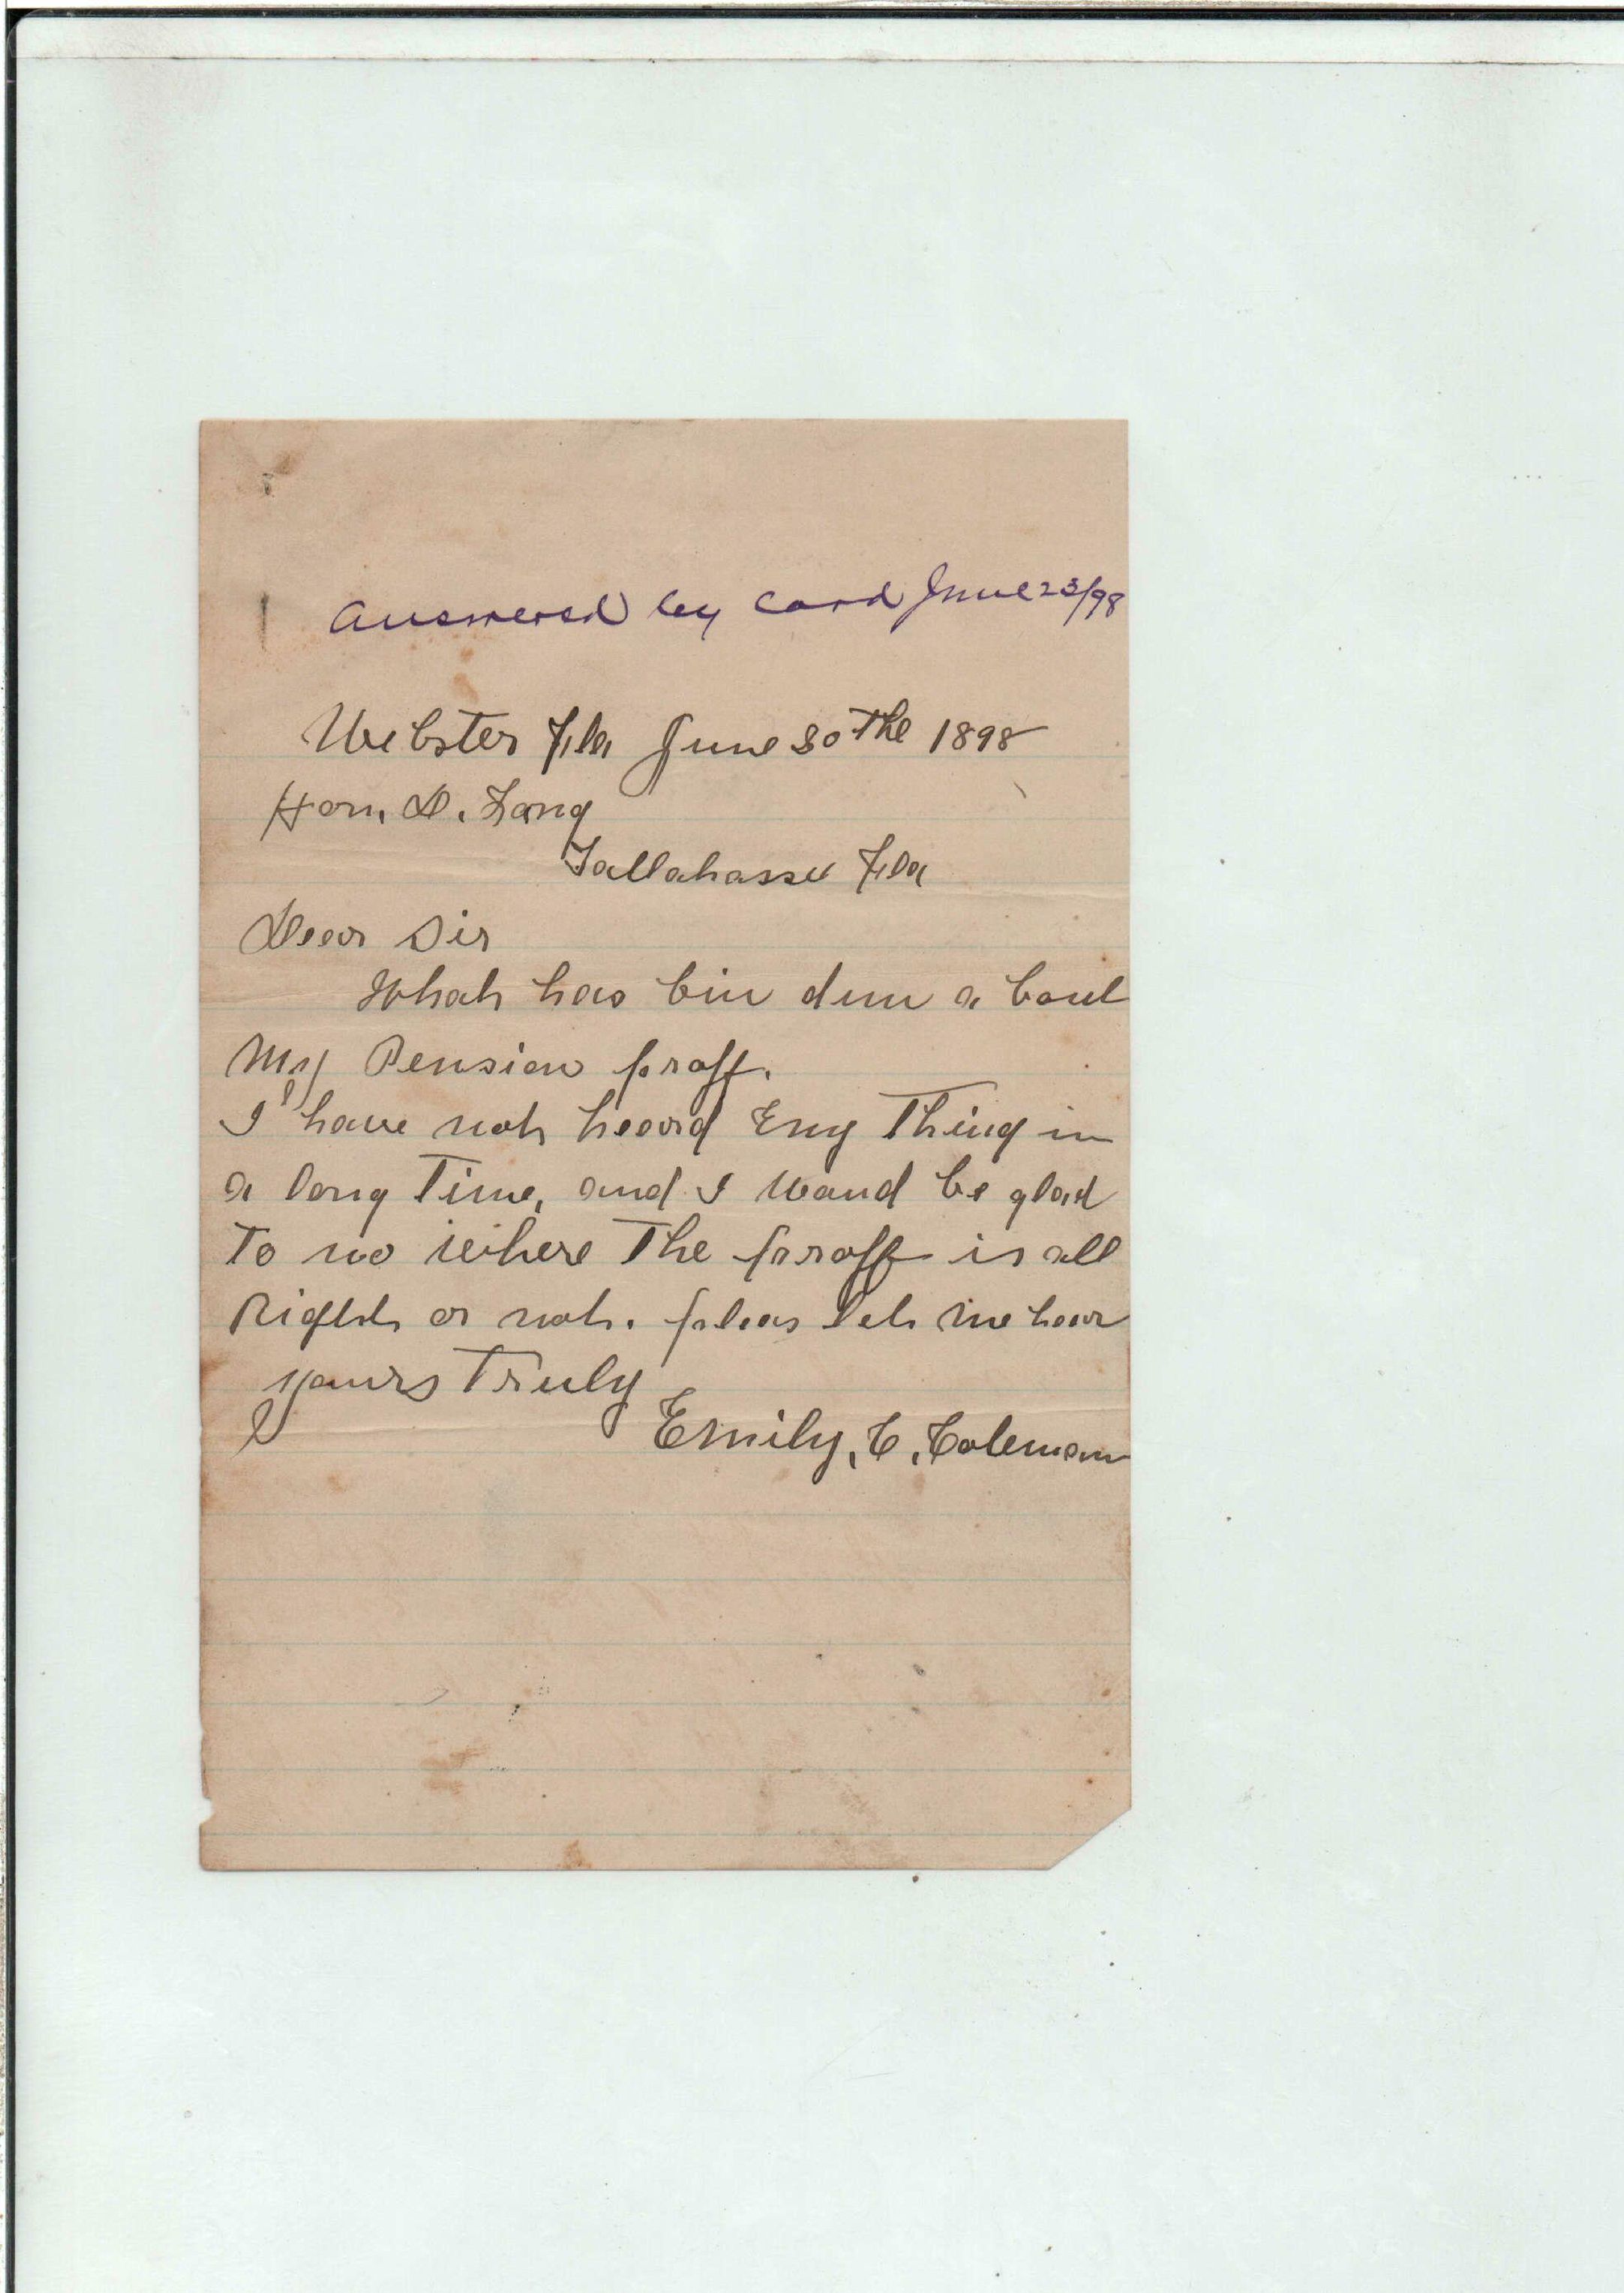 Answered by card June 23/98
Webster Fla June 20the 1898
Hon. D. Lang
Tallahassee Fla
Dear Sir
What has bin dun a bout
My Pension proff.
I have not heard Eny Thing in
a long Time, and I woud be glad
To no where The proff is all
Right or not. pleas let me hear
yours Truly
Emily, C, Coleman